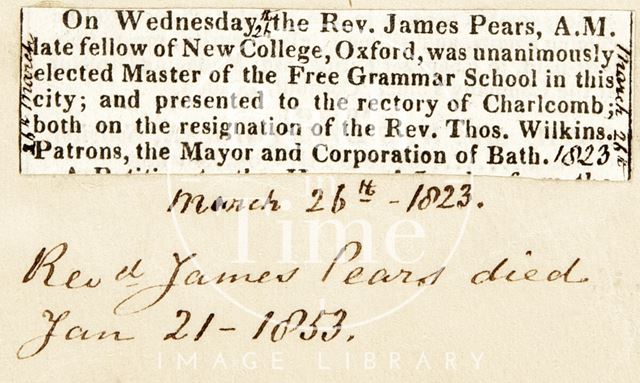 On Wednesday, the Rev. James Pears, A.M.
late fellow of New College, Oxford, was unanimously
elected Master of the Free Grammar School in this
city; and presented to the rectory of Charlcomb;
both on the resignation of the Rev. Thos. Wilkins.
Patrons, the Mayor and Corporation of Bath. 1823
26th March
March 26th
March 26th - 1823.
Revd James Pears died
Jan 21 - 1853.
Time
IMAGE LIBRARY